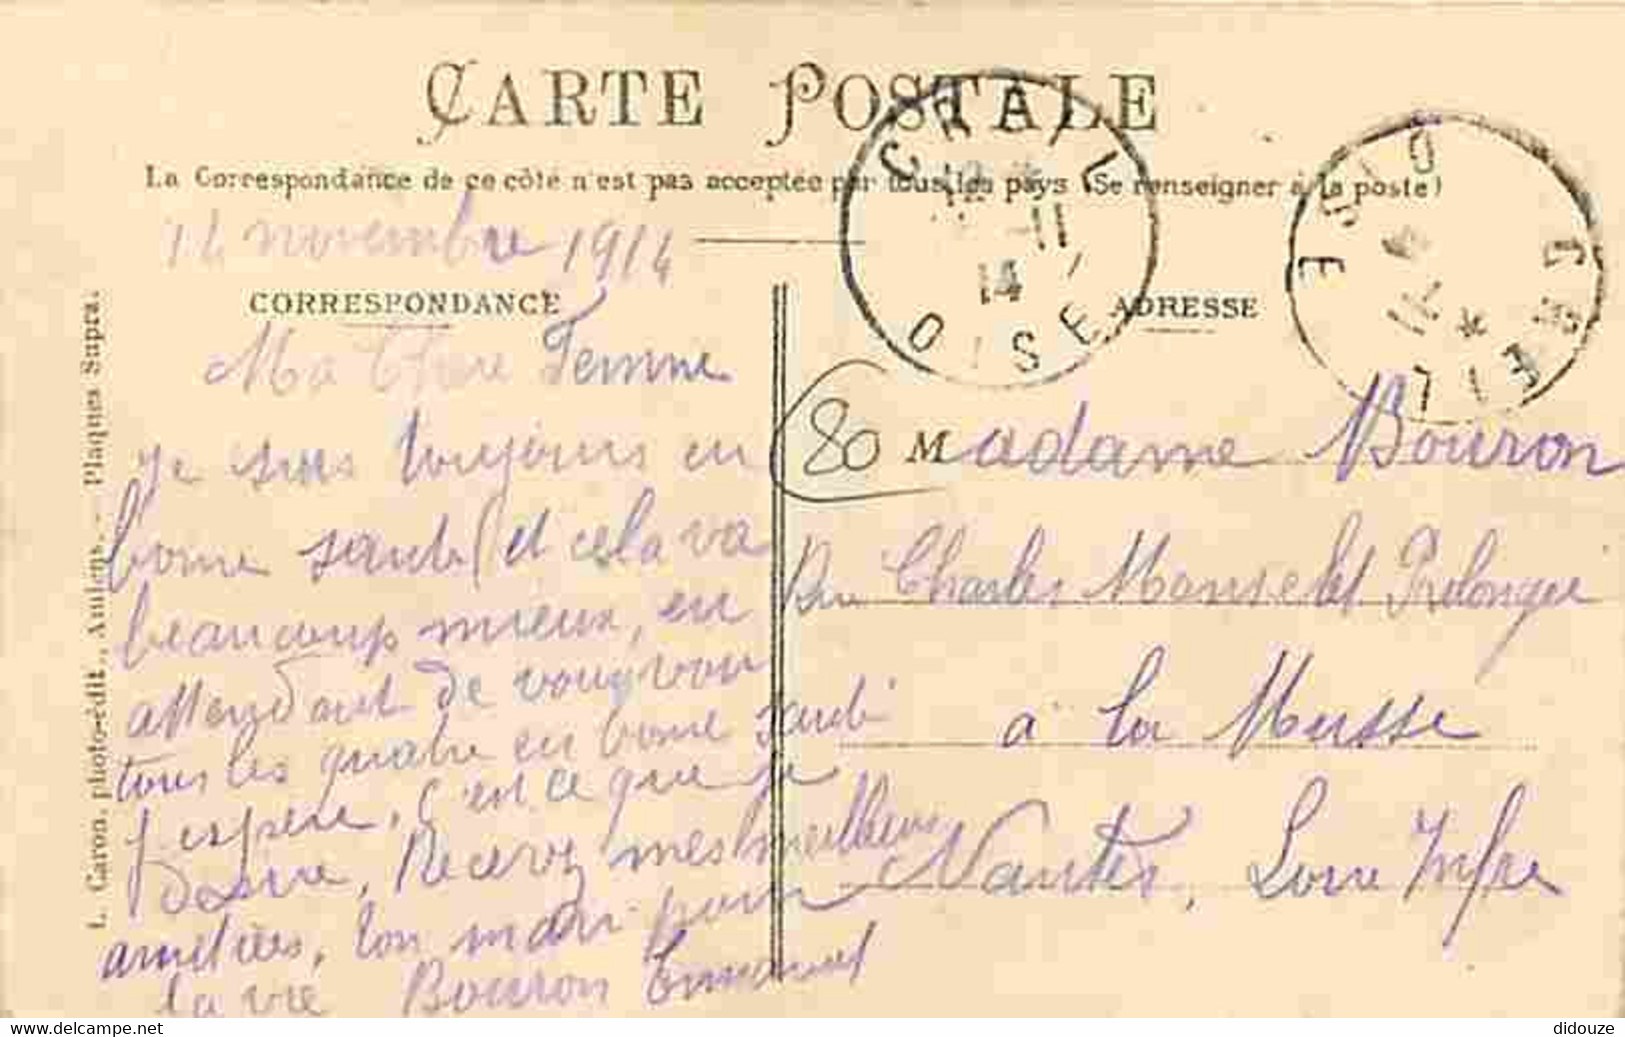 CARTE POSTALE
La Correspondance de ce côté n'est pas acceptée par tous les pays (Se renseigner à la poste)
CREIL
12 -11
14
OISE
CREIL
OISE
14 novembre 1914
CORRESPONDANCE
ADRESSE
Ma Chere Femme
je suis toujours en
bonne santé et cela va
beaucoup mieux, en
attendant de vous voir
tous les quatre en bonne santé
j'espère, c'est ce que je
désire, Recevez mes meilleurs
amitiées, ton mari pour
la vie Bouron Emmanuel
80
Madame Bouron
Rue Charles Monselet Prolongée
à la Musse
Nantes, Loire Infre
L. Caron, photo-édit., Amiens. - Plaques Supra.
www.delcampe.net
didouze